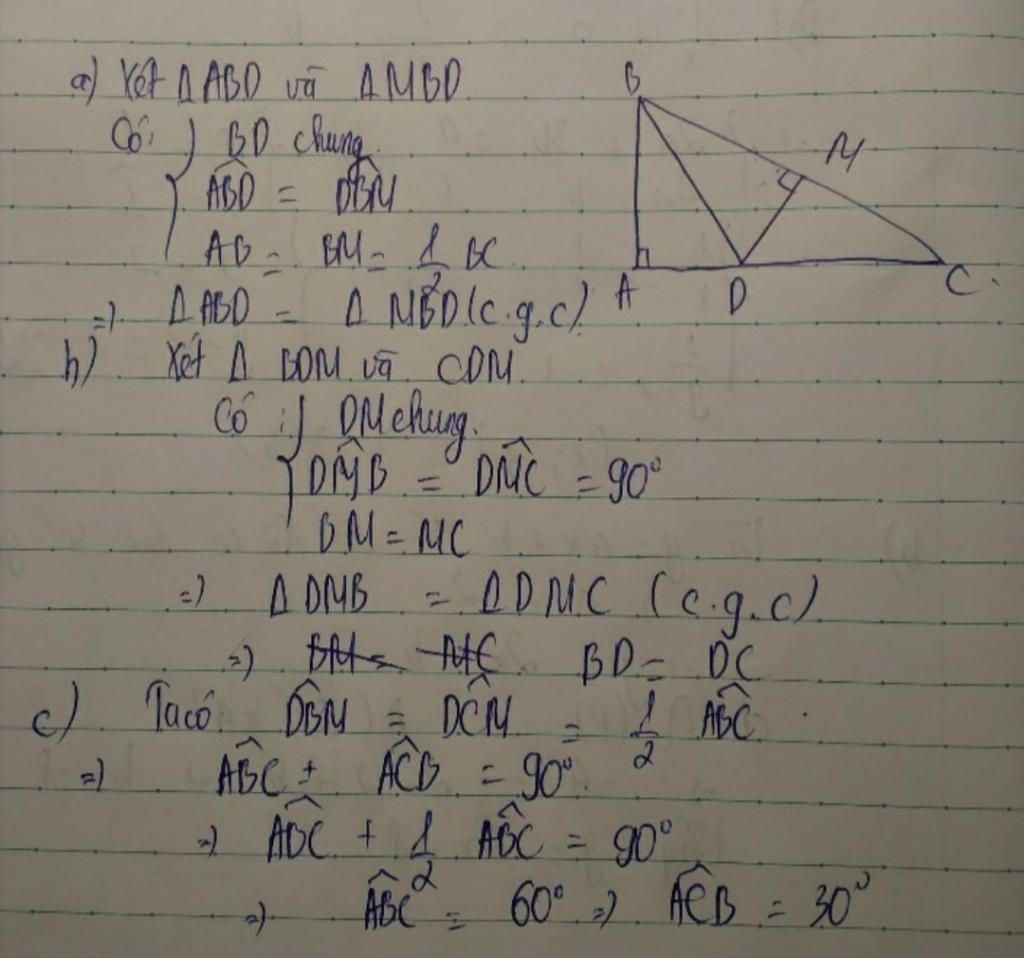 a) Xét Δ ABD và Δ MBD
Có: { BD chung.
\widehat{ABD} = \widehat{DBM}
AB = BM = \frac{1}{2} BC
=) Δ ABD = Δ MBD (c.g.c)
b) Xét Δ BDM và CDM.
Có : { DM chung.
\widehat{DMB} = \widehat{DMC} = 90°
BM = MC
=) Δ DMB = Δ DMC (c.g.c)
=) ~~BM = MC~~ BD = DC
c) Ta có \widehat{DBM} = \widehat{DCM} = \frac{1}{2} \widehat{ABC}
=) \widehat{ABC} + \widehat{ACB} = 90°
=) \widehat{ABC} + \frac{1}{2} \widehat{ABC} = 90°
=) \widehat{ABC} = 60° =) \widehat{ACB} = 30°
B
M
A
D
C